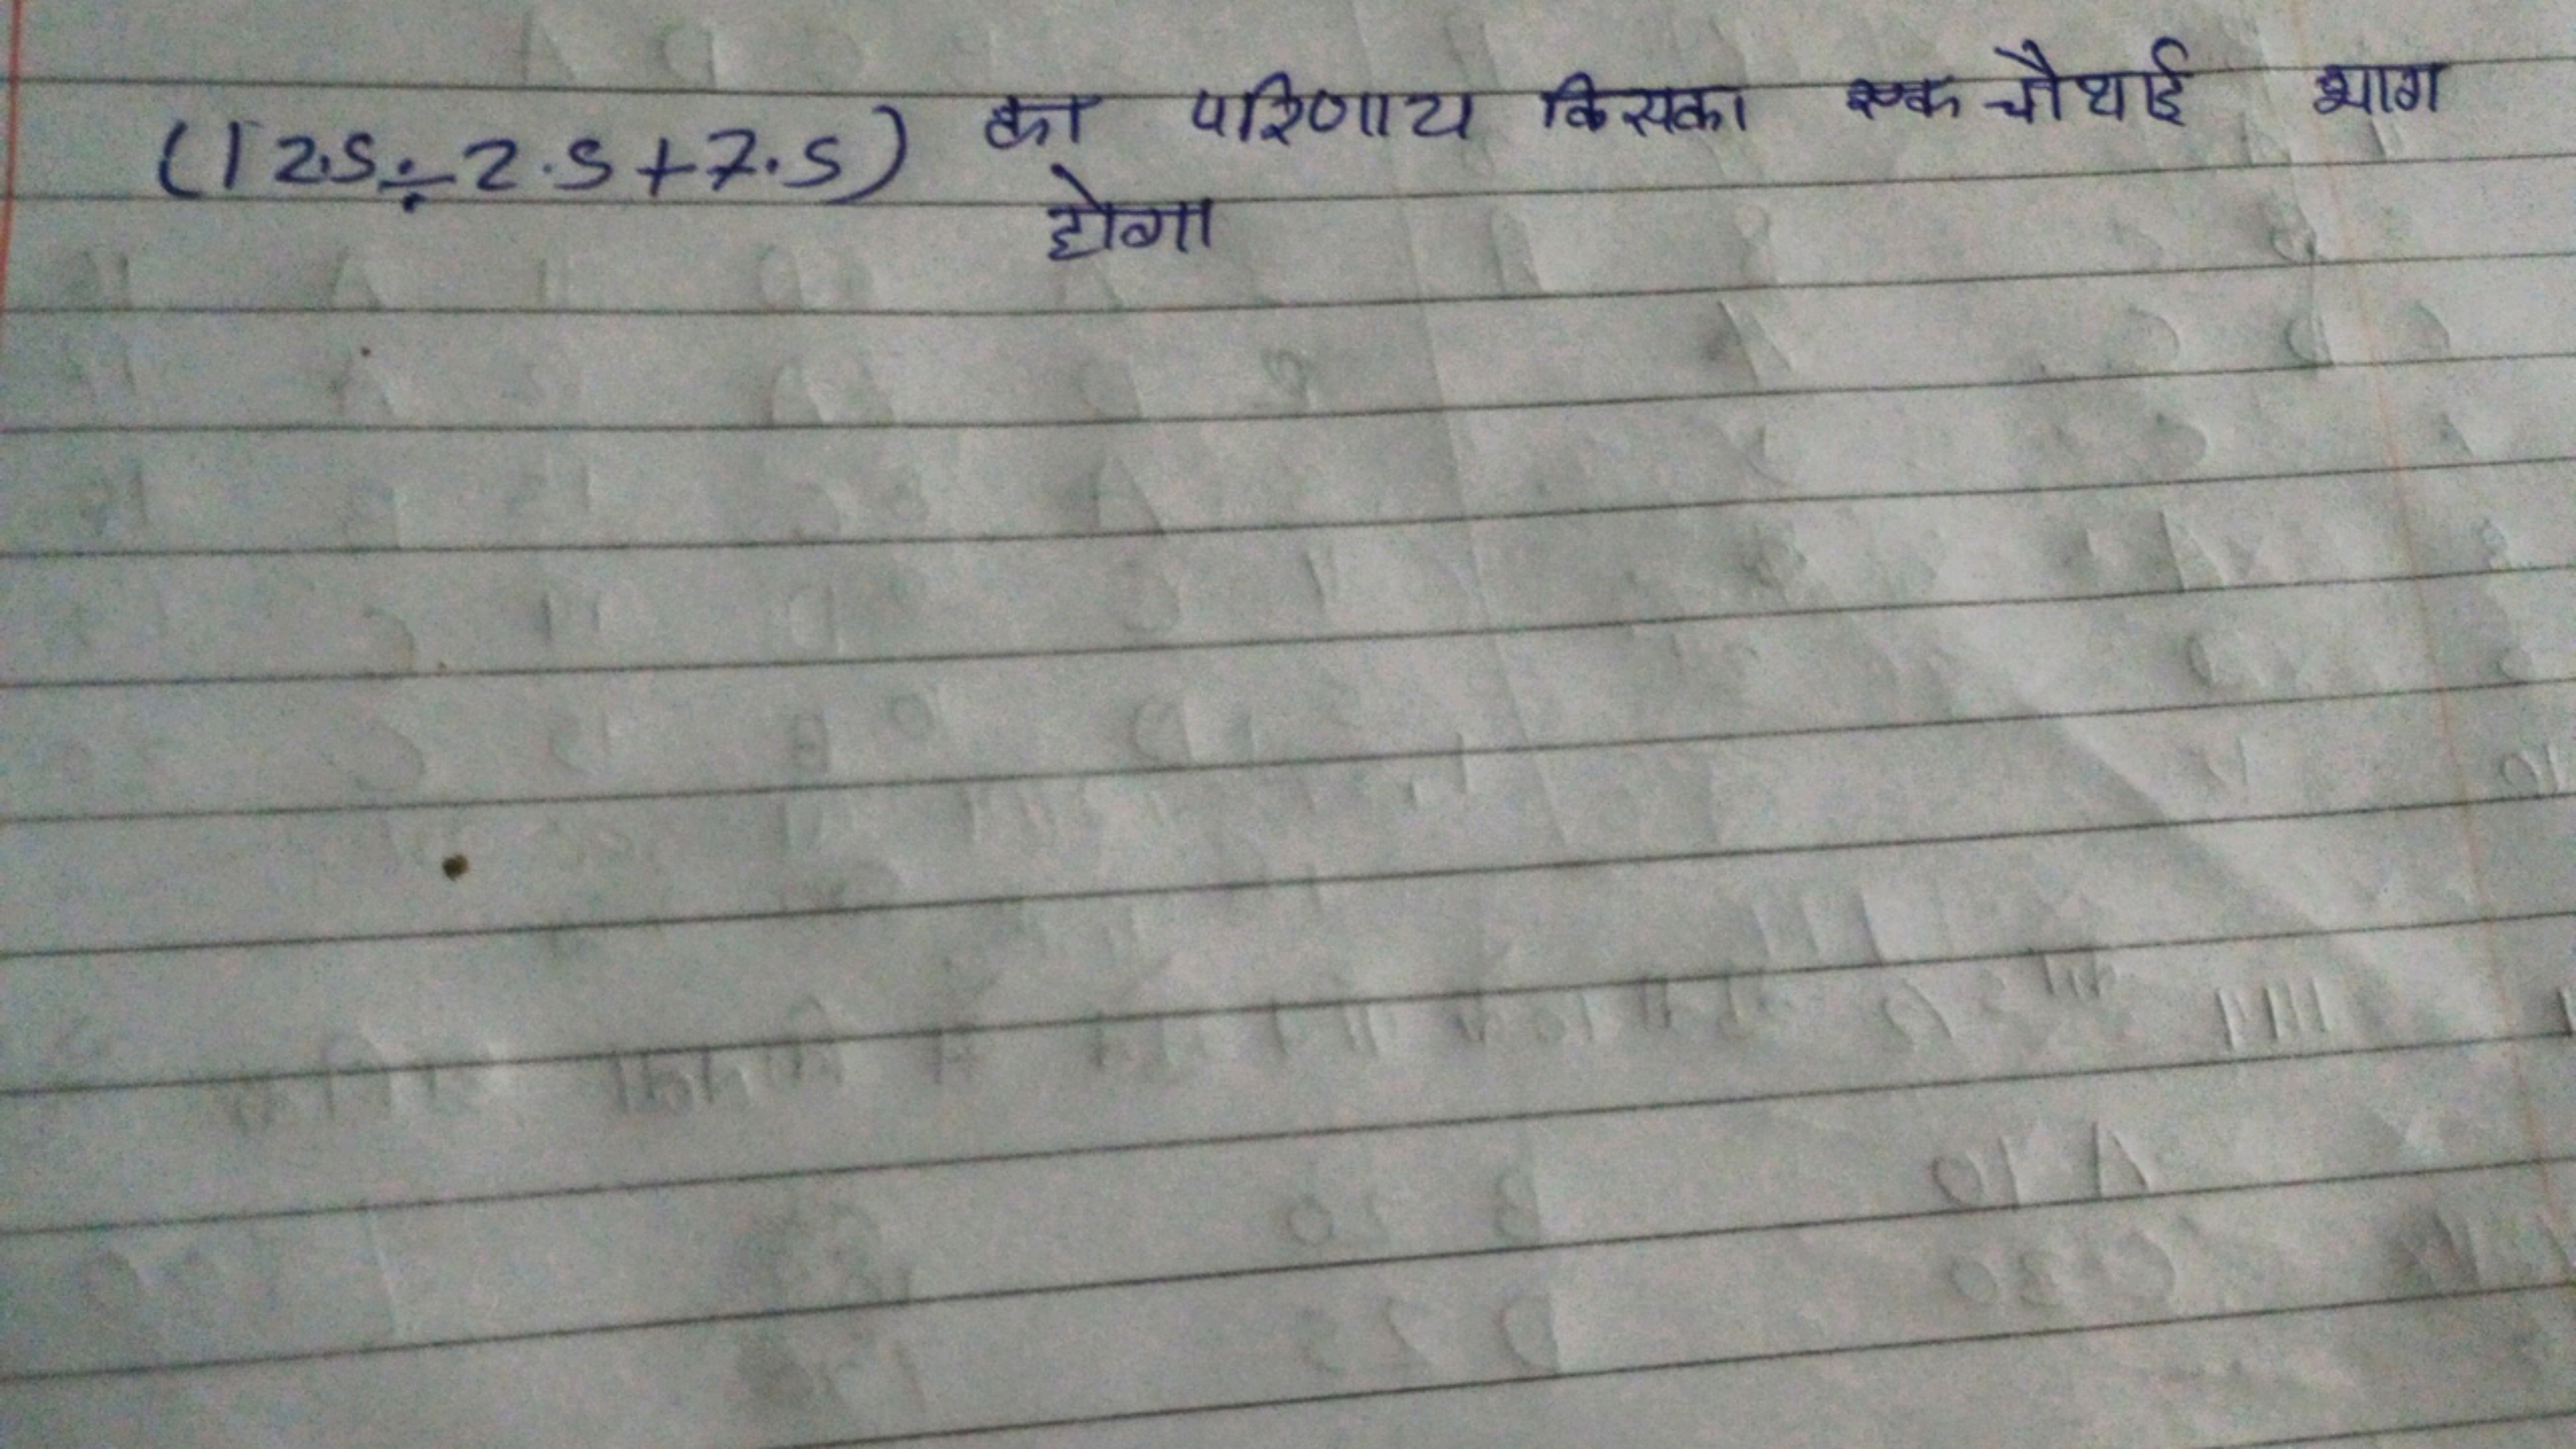 (12.5÷2.5+7.5) का परिणाम किसका एक चौथाई भाग
होगा